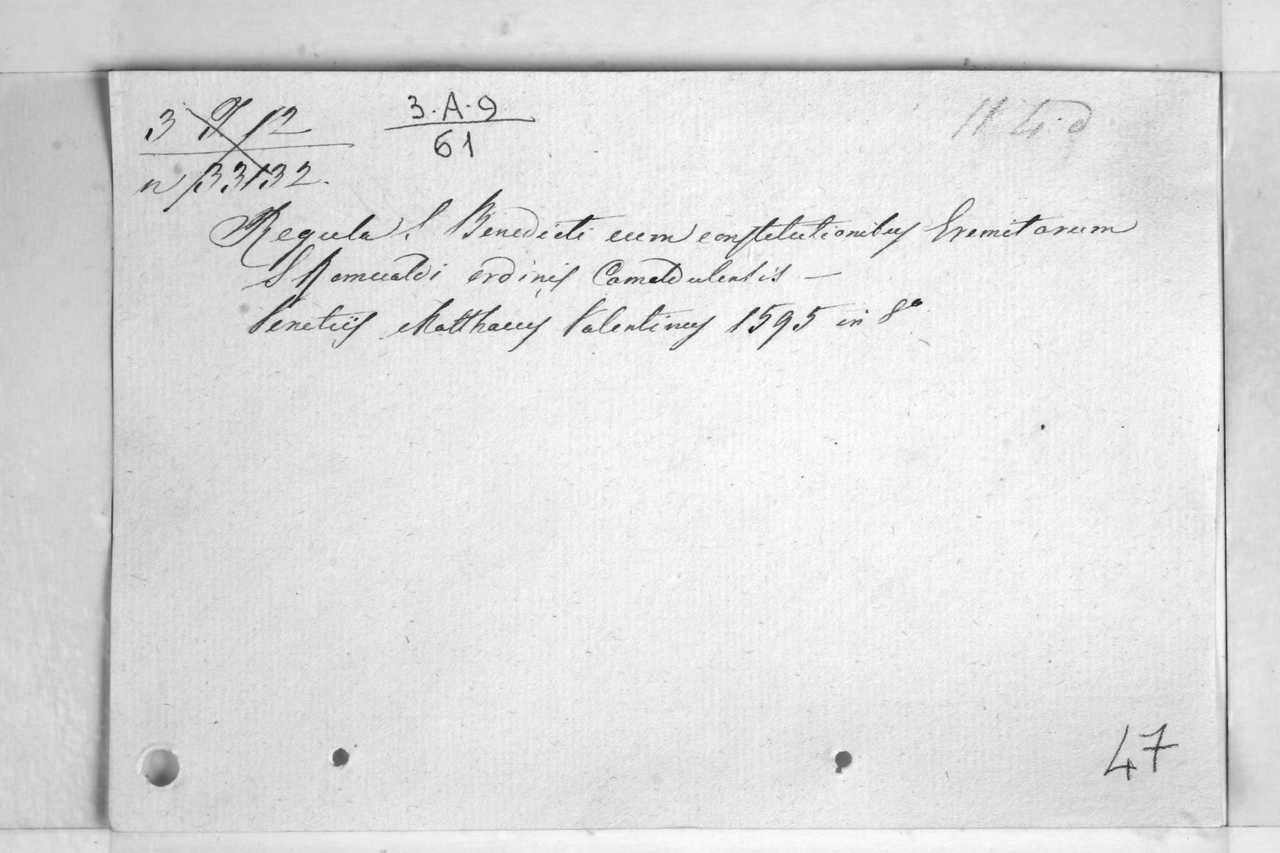 3 9 12
n 33132.
3·A·9
61
Regula S Benedicti cum constitutionibus Eremitarum
S Romualdi ordinis Camaldulensis —
Venetiis Matthaeus Valentinus 1595 in 8º
47